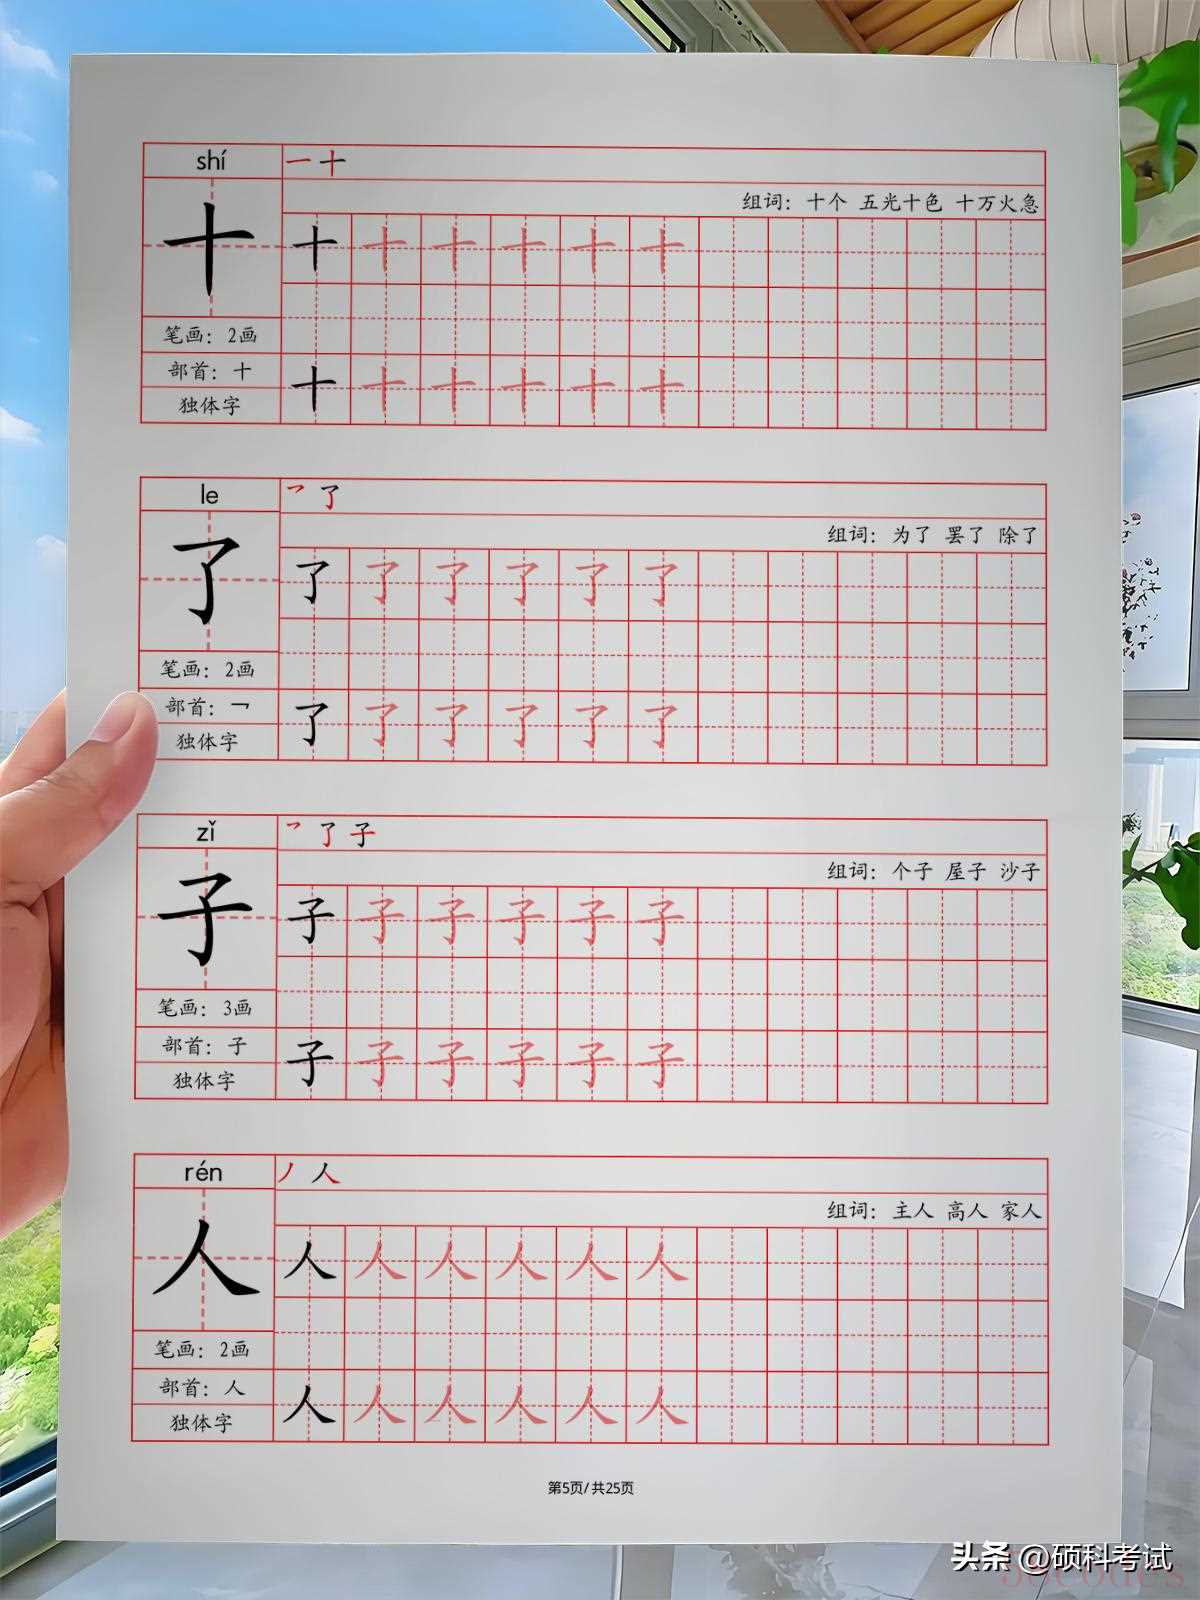 shí
一 十
组词：十个 五光十色 十万火急
十
十 十 十 十 十 十
笔画：2画
部首：十
独体字
十 十 十 十 十 十
le
乛 了
组词：为了 罢了 除了
了
了 了 了 了 了 了
笔画：2画
部首：乛
独体字
了 了 了 了 了 了
zǐ
乛 了 子
组词：个子 屋子 沙子
子
子 子 子 子 子 子
笔画：3画
部首：子
独体字
子 子 子 子 子 子
rén
丿 人
组词：主人 高人 家人
人
人 人 人 人 人 人
笔画：2画
部首：人
独体字
人 人 人 人 人 人
第5页/共25页
头条 @硕科考试